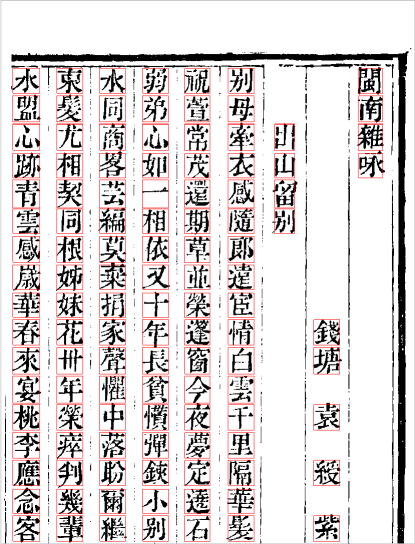 閩南雜咏
錢塘袁綬紫
出山留別
别母牽衣感隨郎遠宦情白雲千里隔華髮
視萱常茂還期草並榮蓬窗今夜夢定遶石
弱弟心如一相依又十年長貧慣彈鋏小别
水同商畧芸編莫棄捐家聲懼中落盼爾繼
束髮尤相契同根姊妹花卅年榮瘁判幾輩
水盟心跡青雲感歲華春來宴桃李應念客